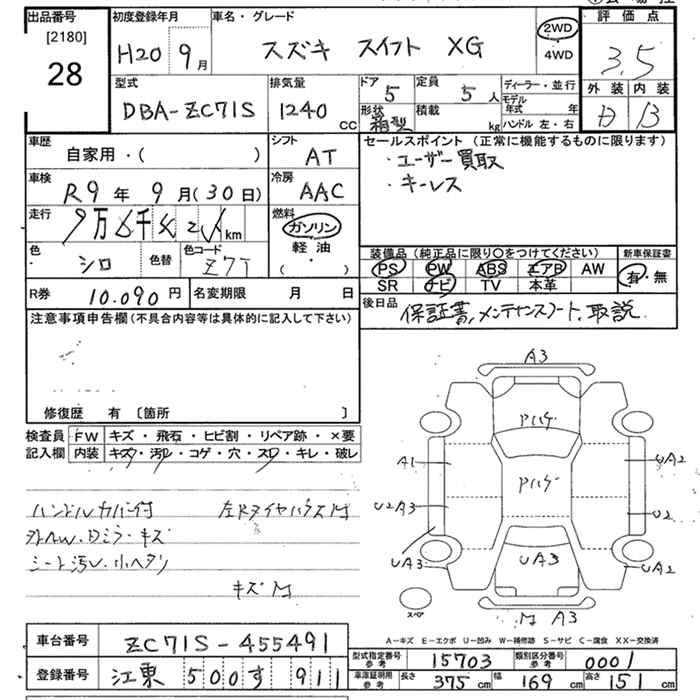 出品番号
[2180]
28
初度登録年月
H20 9月
車名・グレード
スズキ スイフト XG
2WD
4WD
評価点
3.5
外装 内装
B
型式
DBA-ZC71S
排気量
1240 CC
ドア 5
形状 箱型
定員 5人
積載 kg
ディーラー・並行
モデル年式 年
ハンドル 左・右
車歴
自家用・( )
シフト AT
車検
R9年 9月(30日)
冷房 AAC
走行
9万 千 km
燃料
ガソリン
軽油
( )
色 シロ
色替
色コード Z7T
R券 10.090円
名変期限 月 日
セールスポイント (正常に機能するものに限ります)
・ユーザー買取
・キーレス
装備品 (純正品に限り○をつけてください)
PS PW ABS エアB AW
SR ナビ TV 本革
新車保証書
有・無
後日品
保証書,メンテナンスノート,取説
注意事項申告欄(不具合内容等は具体的に記入して下さい)
修復歴 有 [箇所 ]
検査員 記入欄
FW キズ・飛石・ヒビ割・リペア跡・×要
内装 キズ・汚レ・コゲ・穴・スレ・キレ・破レ
ハンドルカバー付
左Rタイヤハウス
シート汚レ
キズ
A3
Pハゲ
A1
UA2
Pハゲ
U2A3
U2
UA3
UA3
UA2
スペア
A3
A-キズ E-エクボ U-凹み W-補修跡 S-サビ C-腐食 XX-交換済
車台番号 ZC71S-455491
登録番号 江東 500 す 911
型式指定番号 参考 15703
類別区分番号 参考 0001
車庫証明用 参考 長さ 375cm 幅 169cm 高さ 151cm